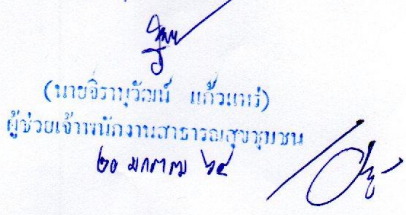 (นายจิรานุวัฒน์ แก้วแพร่)
ผู้ช่วยเจ้าพนักงานสาธารณสุขชุมชน
๒๐ มกราคม ๖๕